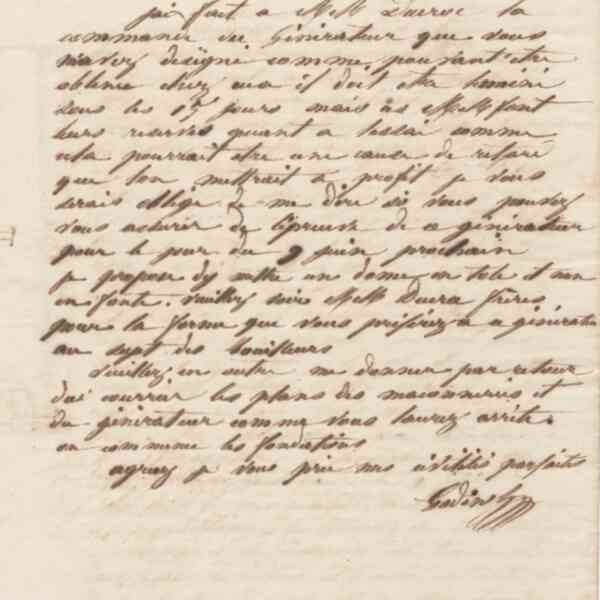 j'ai fait a MM Ducros la
commande du Générateur que vous
m'avez désigné comme pouvant etre
obtenu chez eux il doit etre terminé
sous les 15 jours mais ils font
leurs reserves quant a l'essai comme
cela pourrait etre une cause de retard
que l'on mettrait a profit je vous
serais obligé de me dire si vous pouvez
vous assurer de l'épreuve de ce générateur
pour le jour du 9 juin prochain
je propose d'y mettre un dome en tole et non
en fonte. Veuillez MM frères
pour la forme que vous préférez a ce générateur
au sujet des bouilleurs
Veuillez en outre me donner par retour
du courrier les plans des maconneries et
du générateur comme vous l'aurez arrêté.
on commence les fondations
agréez je vous prie mes civilités parfaites
Godin